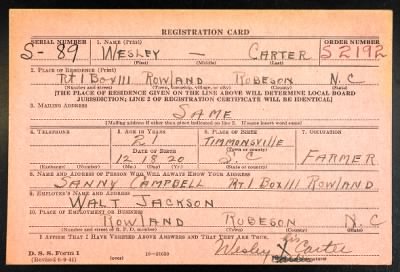 REGISTRATION CARD
SERIAL NUMBER 1. NAME (Print) ORDER NUMBER
S- 89 WESLEY — CARTER S2192
(First) (Middle) (Last)
2. PLACE OF RESIDENCE (Print)
Rt 1 Box 111 ROWLAND ROBESON N.C
(Number and street) (Town, township, village, or city) (County) (State)
[THE PLACE OF RESIDENCE GIVEN ON THE LINE ABOVE WILL DETERMINE LOCAL BOARD
JURISDICTION; LINE 2 OF REGISTRATION CERTIFICATE WILL BE IDENTICAL]
3. MAILING ADDRESS
SAME
[Mailing address if other than place indicated on line 2. If same insert word same]
4. TELEPHONE 5. AGE IN YEARS 6. PLACE OF BIRTH 7. OCCUPATION
21 TIMMONSVILLE
DATE OF BIRTH (Town or county)
12 18 20 S.C FARMER
8. NAME AND ADDRESS OF PERSON WHO WILL ALWAYS KNOW YOUR ADDRESS
SANNY CAMPBELL Rt 1 Box 111 ROWLAND
9. EMPLOYER'S NAME AND ADDRESS
WALT JACKSON
10. PLACE OF EMPLOYMENT OR BUSINESS
ROWLAND ROBESON N.C
(Number and street or R. F. D. number) (Town) (County) (State)
I AFFIRM THAT I HAVE VERIFIED ABOVE ANSWERS AND THAT THEY ARE TRUE.
Wesley X Carter
D. S. S. Form 1
(Revised 6-9-41) (over)